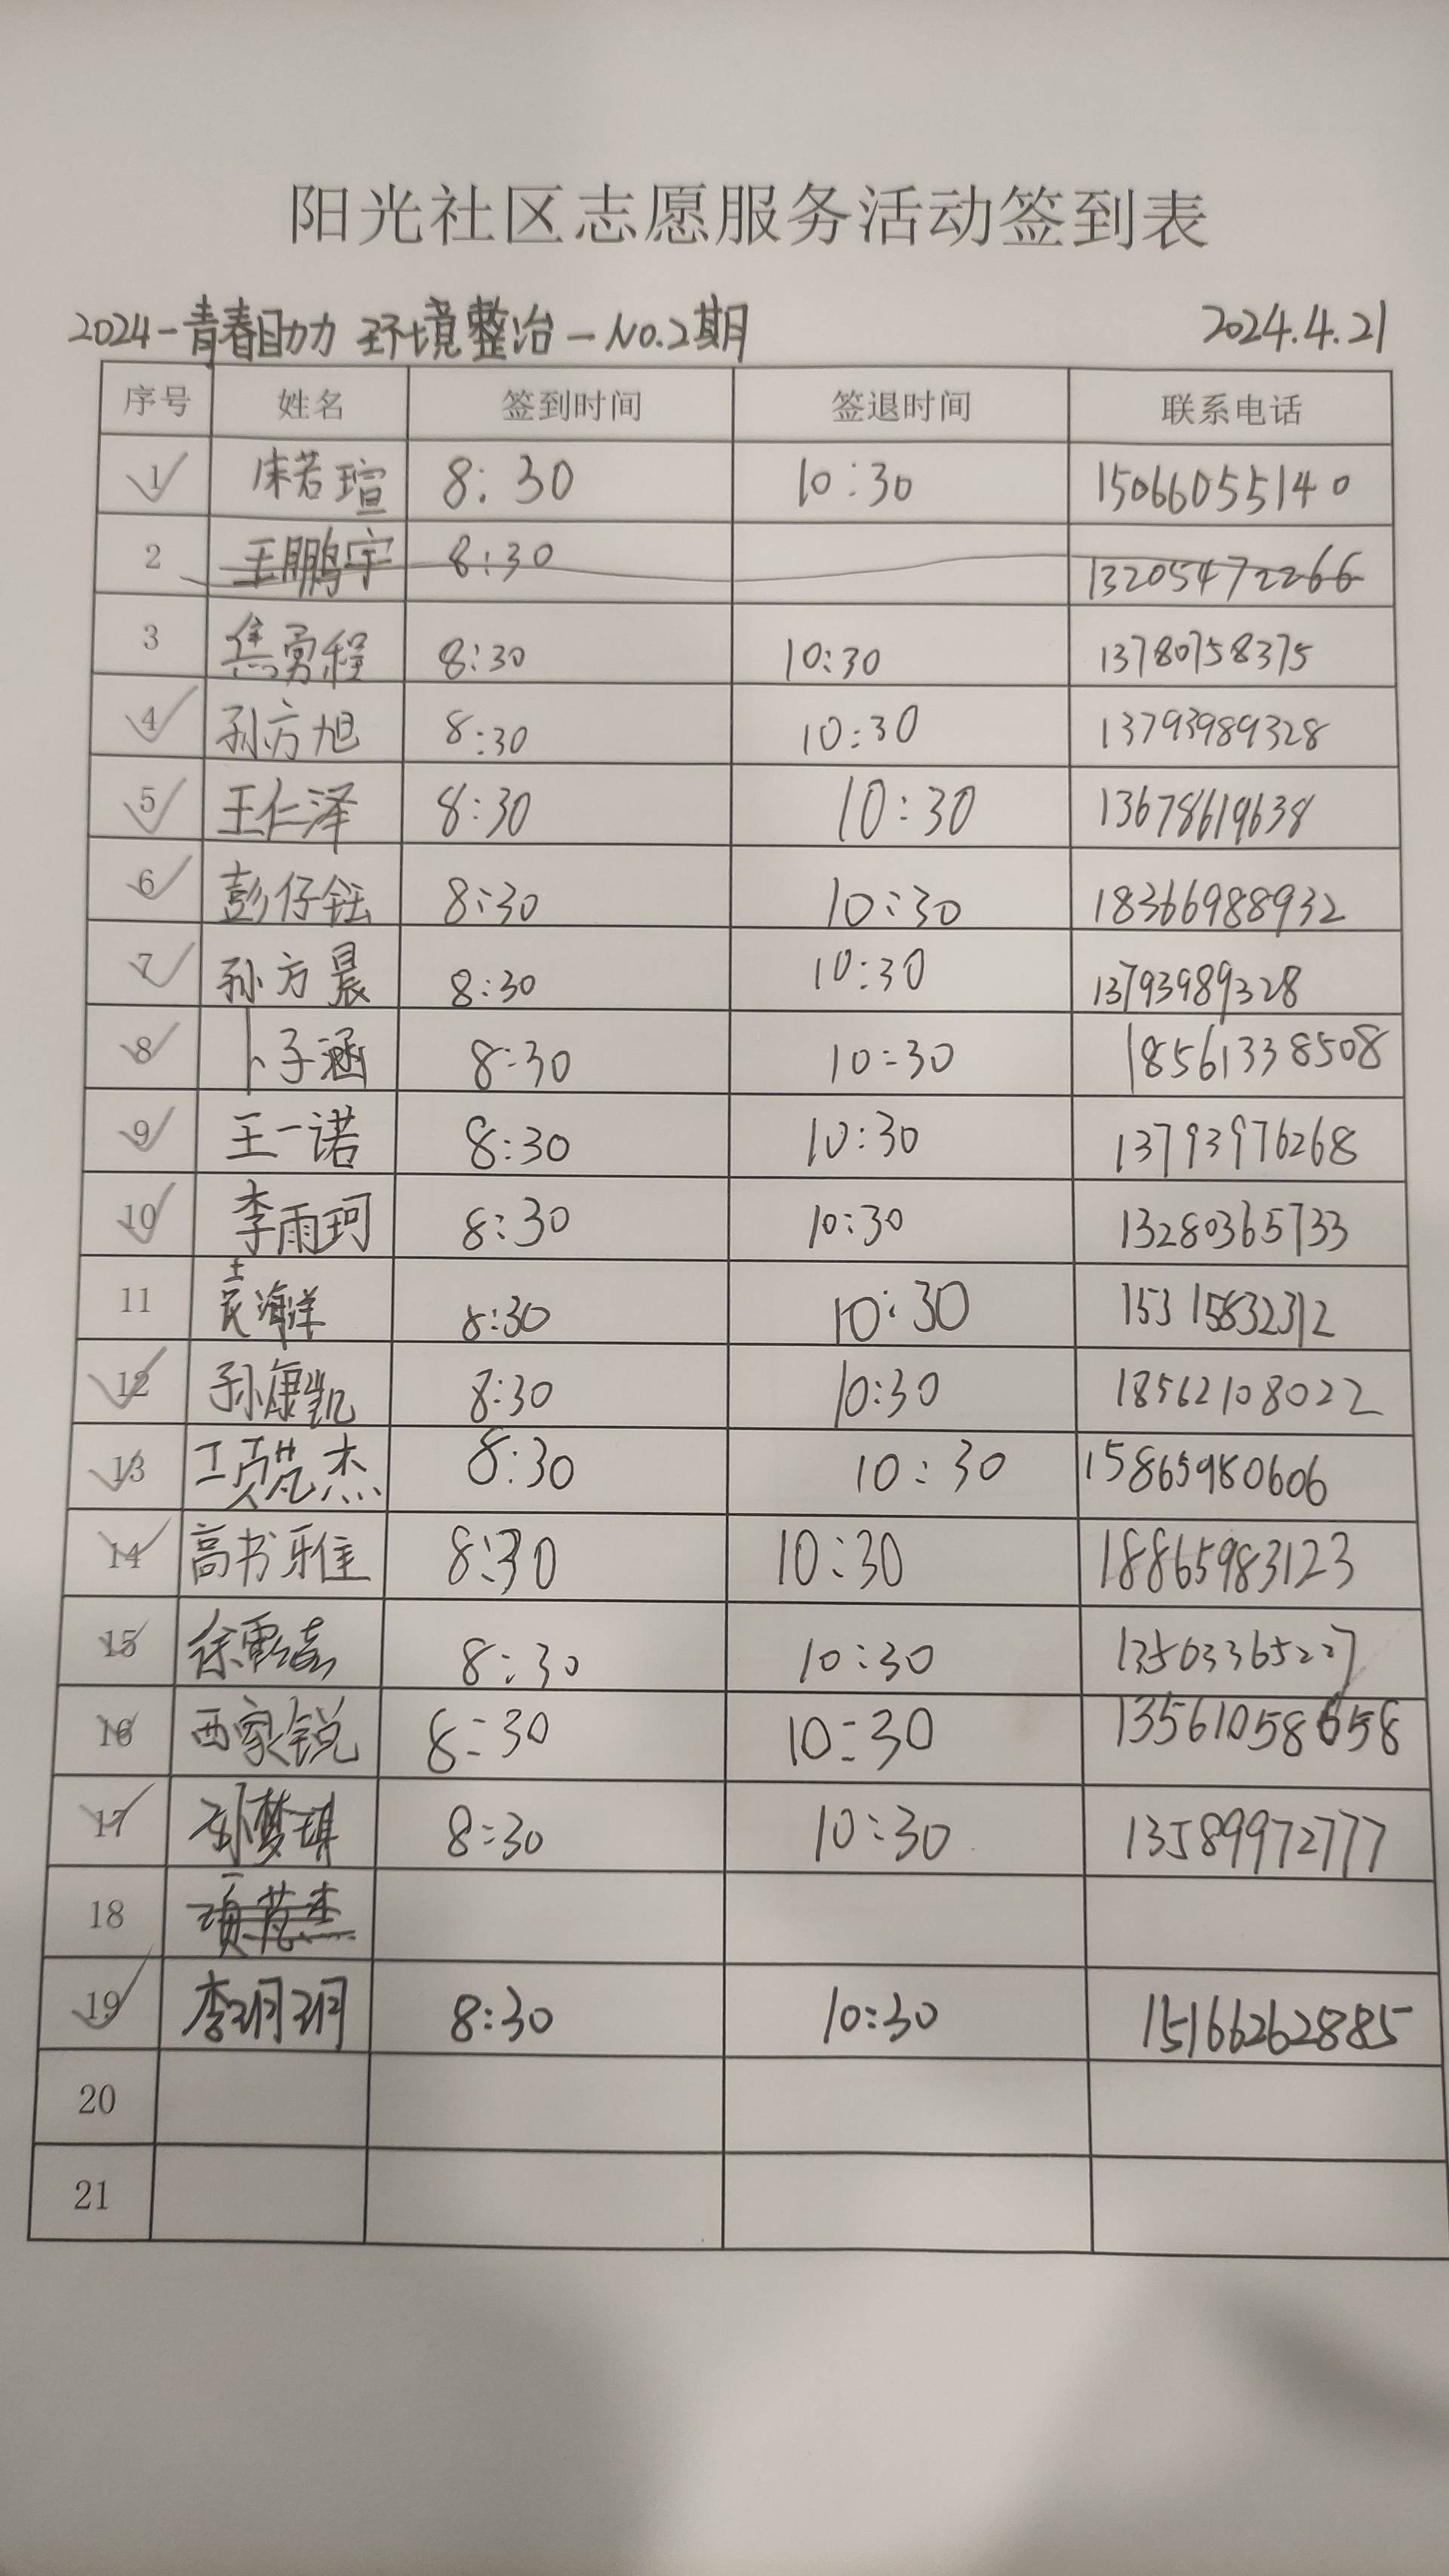 阳光社区志愿服务活动签到表
2024-青春助力 环境整治-No.2期 2024.4.21
序号 姓名 签到时间 签退时间 联系电话
1 朱若瑄 8:30 10:30 15066055140
2 王鹏宇 8:30 13205472266
3 焦勇程 8:30 10:30 13780758375
4 孙方旭 8:30 10:30 13793989328
5 王仁泽 8:30 10:30 13678619638
6 彭仔钰 8:30 10:30 18366988932
7 孙方晨 8:30 10:30 13793989328
8 卜子涵 8:30 10:30 18561338508
9 王一诺 8:30 10:30 13793976268
10 李雨珂 8:30 10:30 13280365733
11 袁海洋 8:30 10:30 15315832312
12 孙康凯 8:30 10:30 18562108022
13 项芃杰 8:30 10:30 15865980606
14 高书雅 8:30 10:30 18865983123
15 8:30 10:30 13503365227
16 西家锐 8:30 10:30 13561058658
17 孙梦琪 8:30 10:30 13589972777
18
19 李玥玥 8:30 10:30 15166262885
20
21